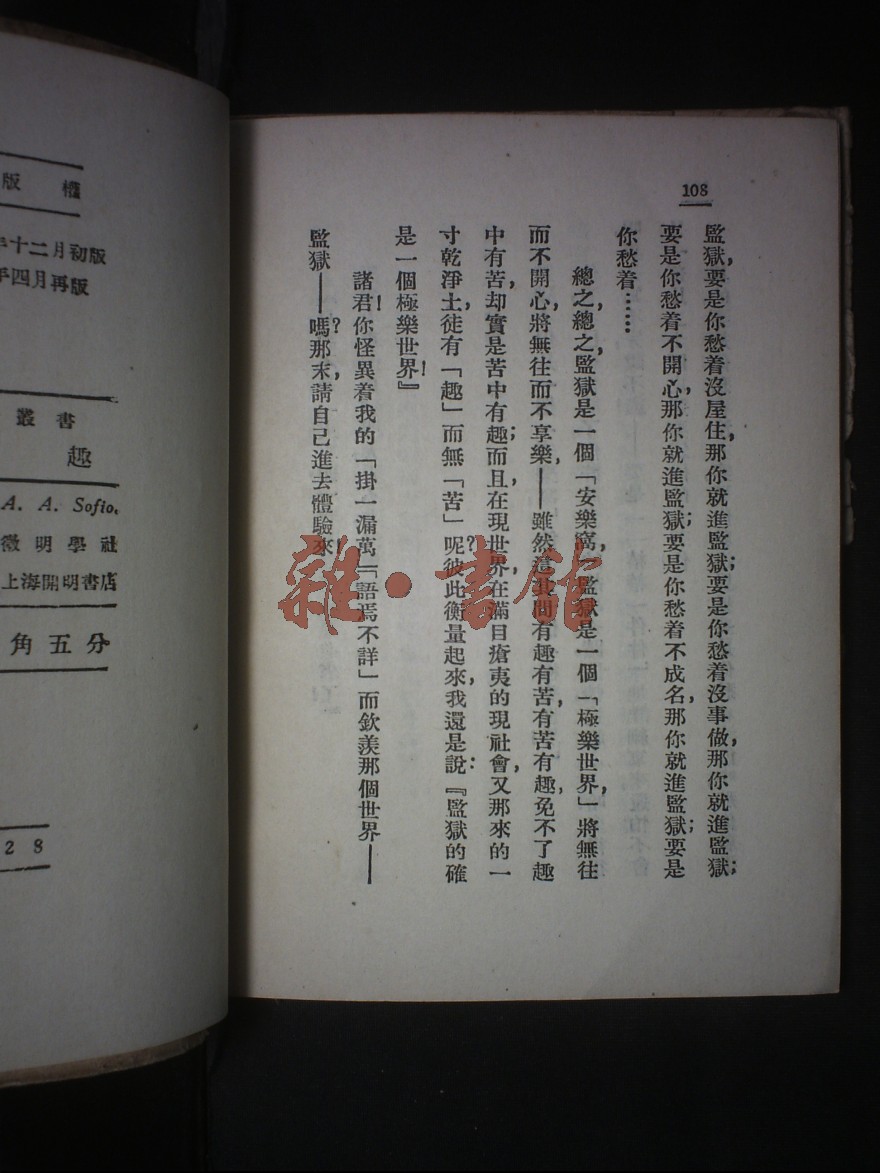 108
監獄,要是你愁着沒屋住,那你就進監獄;要是你愁着沒事做,那你就進監獄;
要是你愁着不開心,那你就進監獄;要是你愁着不成名,那你就進監獄;要是
你愁着……
總之,總之,監獄是一個「安樂窩,」監獄是一個「極樂世界,」將無往
而不開心,將無往而不享樂,——雖然這其間有趣有苦,有苦有趣,免不了趣
中有苦,却實是苦中有趣;而且,在現世界,在滿目瘡夷的現社會,又那來的一
寸乾淨土,徒有「趣」而無「苦」呢?彼此衡量起來,我還是說:『監獄的確
是一個極樂世界!』
諸君!你怪異着我的「掛一漏萬」「語焉不詳」而欽羨那個世界——
監獄——嗎?那末,請自己進去體驗來!
雜·書館
版權
年十二月初版
年四月再版
叢書
趣
A. A. Sofio,
微明學社
上海開明書店
角五分
28